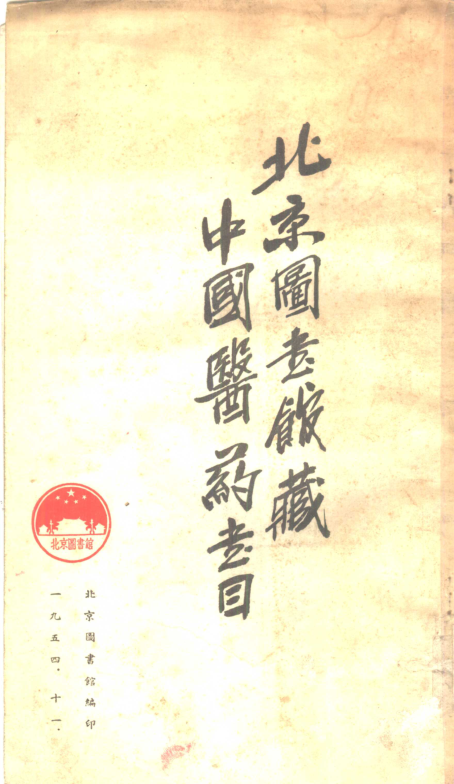 北京圖書館藏
中國醫药書目
北京圖書館
北京圖書館編印
一九五四．十一．